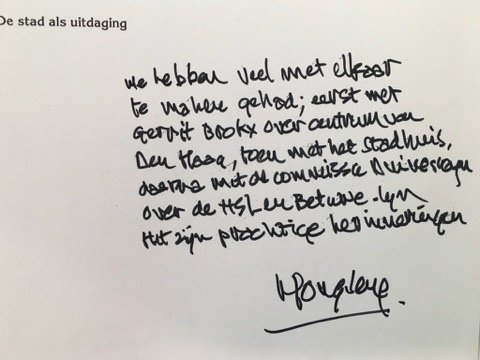 De stad als uitdaging
we hebben veel met elkaar
te maken gehad; eerst met
Gerrit Brokx over centrum van
Den Haag, toen met het stadhuis,
daarna met de commissie Duivesteijn
over de HSL en Betuwe-lijn
Het zijn prachtige herinneringen